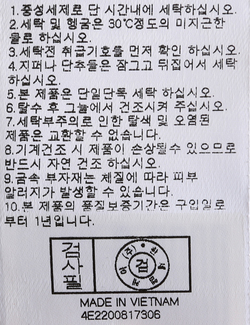 1.중성세제로 단 시간내에 세탁하십시오.
2.세탁 및 헹굼은 30℃정도의 미지근한
물로 하십시오.
3.세탁전 취급기호를 먼저 확인 하십시오.
4.지퍼나 단추들은 잠그고 뒤집어서 세탁
하십시오.
5.본 제품은 단일단독 세탁 하십시오.
6.탈수 후 그늘에서 건조시켜 주십시오.
7.세탁부주의로 인한 탈색 및 오염된
제품은 교환할 수 없습니다.
8.기계건조 시 제품이 손상될수 있으므로
반드시 자연 건조 하십시오.
9.금속 부자재는 체질에 따라 피부
알러지가 발생할 수 있습니다.
10.본 제품의 품질보증기간은 구입일로
부터 1년입니다.
검사필
검
MADE IN VIETNAM
4E2200817306